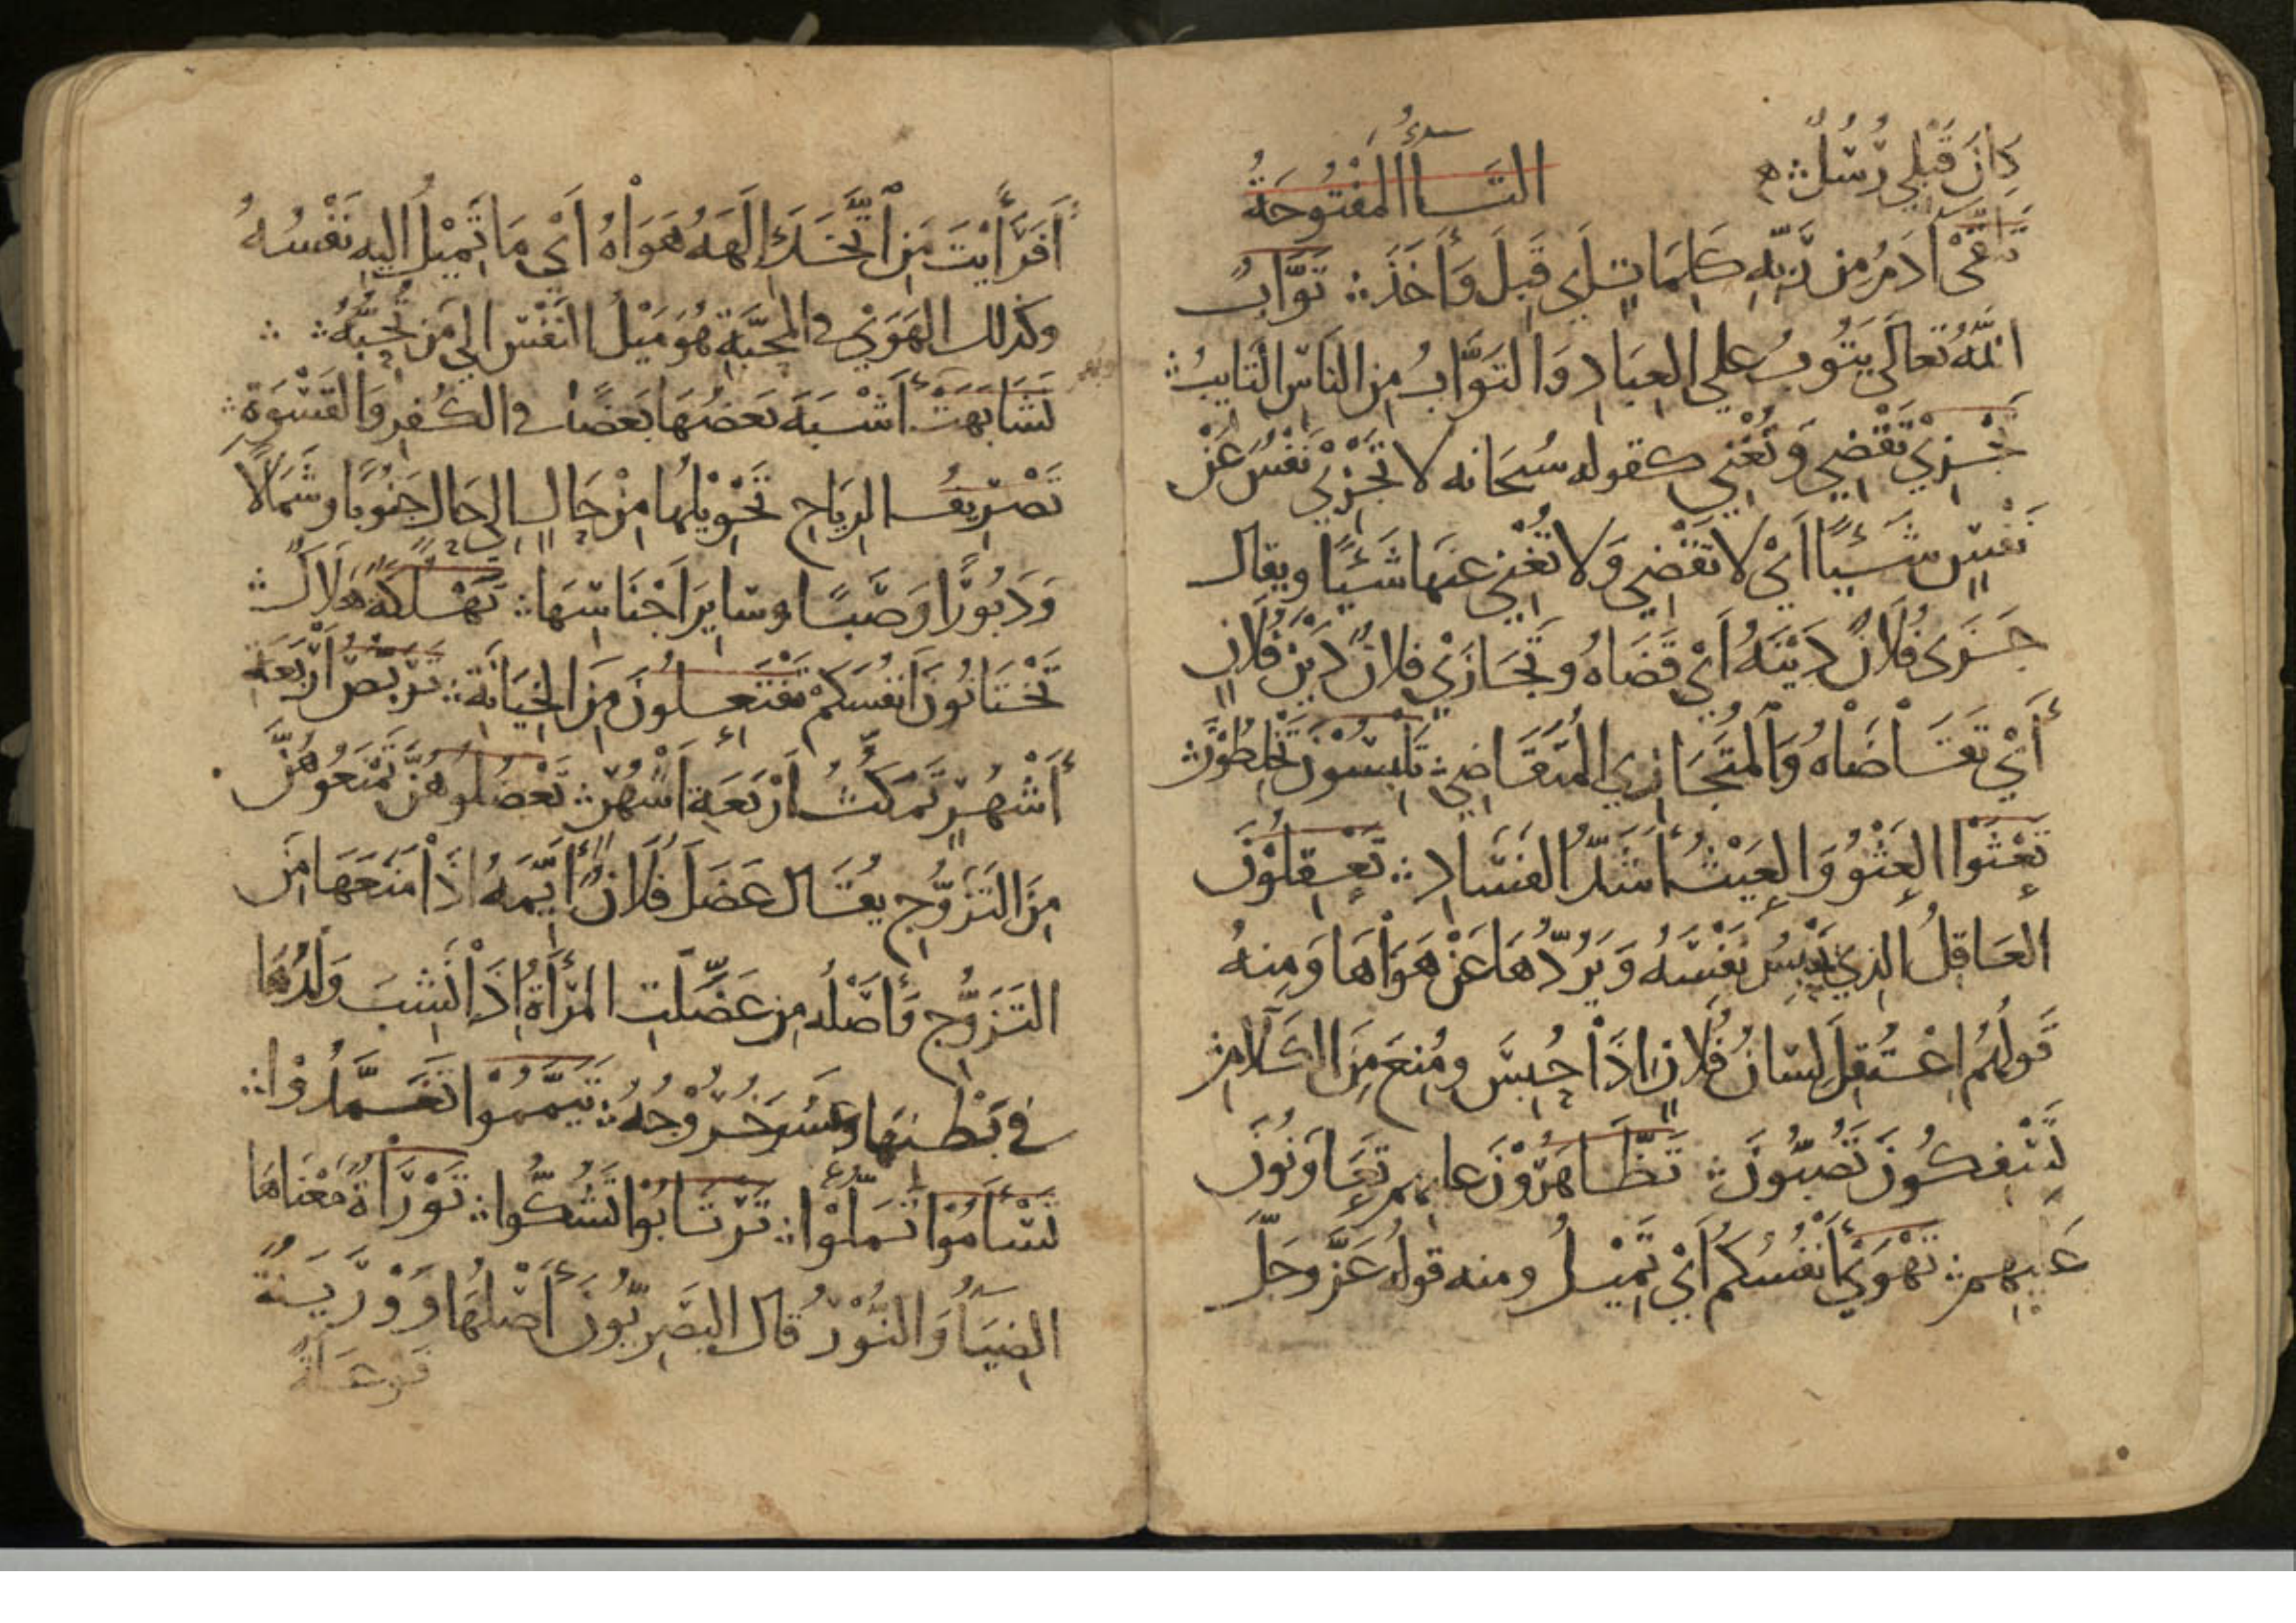 كانَ قَبْلِي رُسُلٌ ۞ التَّاءُ المَفْتُوحَةُ
تَلَقَّى آدَمُ مِن رَّبِّهِ كَلِمَاتٍ أَي قَبِلَ وَأَخَذَ ۞ تَوَّابٌ
اللّٰهُ تَعَالَى يَتُوبُ عَلَى العِبَادِ وَالتَّوَّابُ مِنَ النَّاسِ التَّايِبُ ۞
تَجْزِيْ تَقْضِي وَتُغْنِي كقوله سُبحَانه لا تَجْزِيْ نَفْسٌ عَنْ
نَفْسٍ شَيْئًا أَيْ لا تَقْضِي وَلا تُغْنِي عَنهَا شَيْئًا ويقال
جَزَى فُلَانٌ دَيْنَهُ أَيْ قَضَاهُ وتَجَازَيْ فلانٌ دَيْنَ فُلَانٍ
أَيْ تَقَاضَاهُ وَالْمُتَجَازِي المُتَقَاضِي ۞ تَلْبِسُوْنَ تَخْلِطُوْنَ ۞
تَعْثَوْا العِثُوُ وَالعَيْثُ أَشَدُّ الفَسَادِ ۞ تَعْقِلُوْنَ
العَاقِلُ الذِي يَحْبِسُ نَفْسَهُ وَيَرُدُّهَا عَنْ هَوَاهَا وَمِنهُ
قَولُهُمُ اعْتُقِلَ لِسَانُ فُلَانٍ إِذَا حُبِسَ ومُنِعَ مِنَ الكَلَامِ ۞
تَسْفِكُونَ تَصُبُّونَ ۞ تَظَّاهَرُوْنَ عليهم تَعَاوَنُونَ
عَلَيهِم ۞ تَهْوَىْ أَنْفُسُكُمُ أَيْ تَمِيْلُ ومنه قولُهُ عَزَّ وجَلَّ
أَفَرَأَيْتَ مَنِ اتَّخَذَ إِلَهَهُ هَوَاهُ أَيْ مَا تَمِيْلُ إليهِ نَفْسُهُ
وكذلك الهَوَىْ في المحَبَّةِ هُوَ مَيْلُ النَّفْسِ إلى مَن تُحِبُّهُ ۞
تَشَابَهَتْ أَشْبَهَ بَعضُهَا بَعضًا في الكُفرِ وَالقَسْوَةِ ۞
تَصْرِيفُ الرِيَاحِ تَحْوِيْلُهَا مِنْ حَالٍ إلى حَالٍ جَنُوبًا وشَمَالًا
وَدَبُورًا وَصَبًا وسَايِرَ أَجْنَاسِهَا ۞ تَهْلُكَةٌ هَلَاكٌ ۞
تَخْتَانُونَ أَنفُسَكُمْ تَفْتَعِلُونَ مِنَ الخِيَانَةِ ۞ تَرَبُّصُ أَرْبَعَةِ
أَشْهُرٍ تَمَكُّثُ أَرْبَعَةِ أَشْهُرٍ ۞ تَعْضُلُوهُنَّ تَمْنَعُوهُنَّ
مِنَ التَزَوُّجِ يُقَال عَضَلَ فُلَانٌ أَيِّمَهُ إِذَا مَنَعَهَا مِنَ
التَزَوُّجِ وَأَصْلُه مِن عَضَّلَتِ المَرْأَةُ إِذَا نَشِبَ وَلَدُهَا
فِي بَطْنِهَا وعَسُرَ خُرُوْجُهُ ۞ تَيَمَّمُوْا تَعَمَّدُوْا ۞
تَسْأَمُوْا تَمَلُّوْا ۞ تَرْتَابُوْا تَشُكُّوا ۞ تَوْرَاةٌ مَعْنَاهَا
الضِيَاءُ وَالنُّوْرُ قَالَ البَصْرِيُّونَ أَصْلُهَا وَوْرَيَةٌ
فَوعَلَةٌ